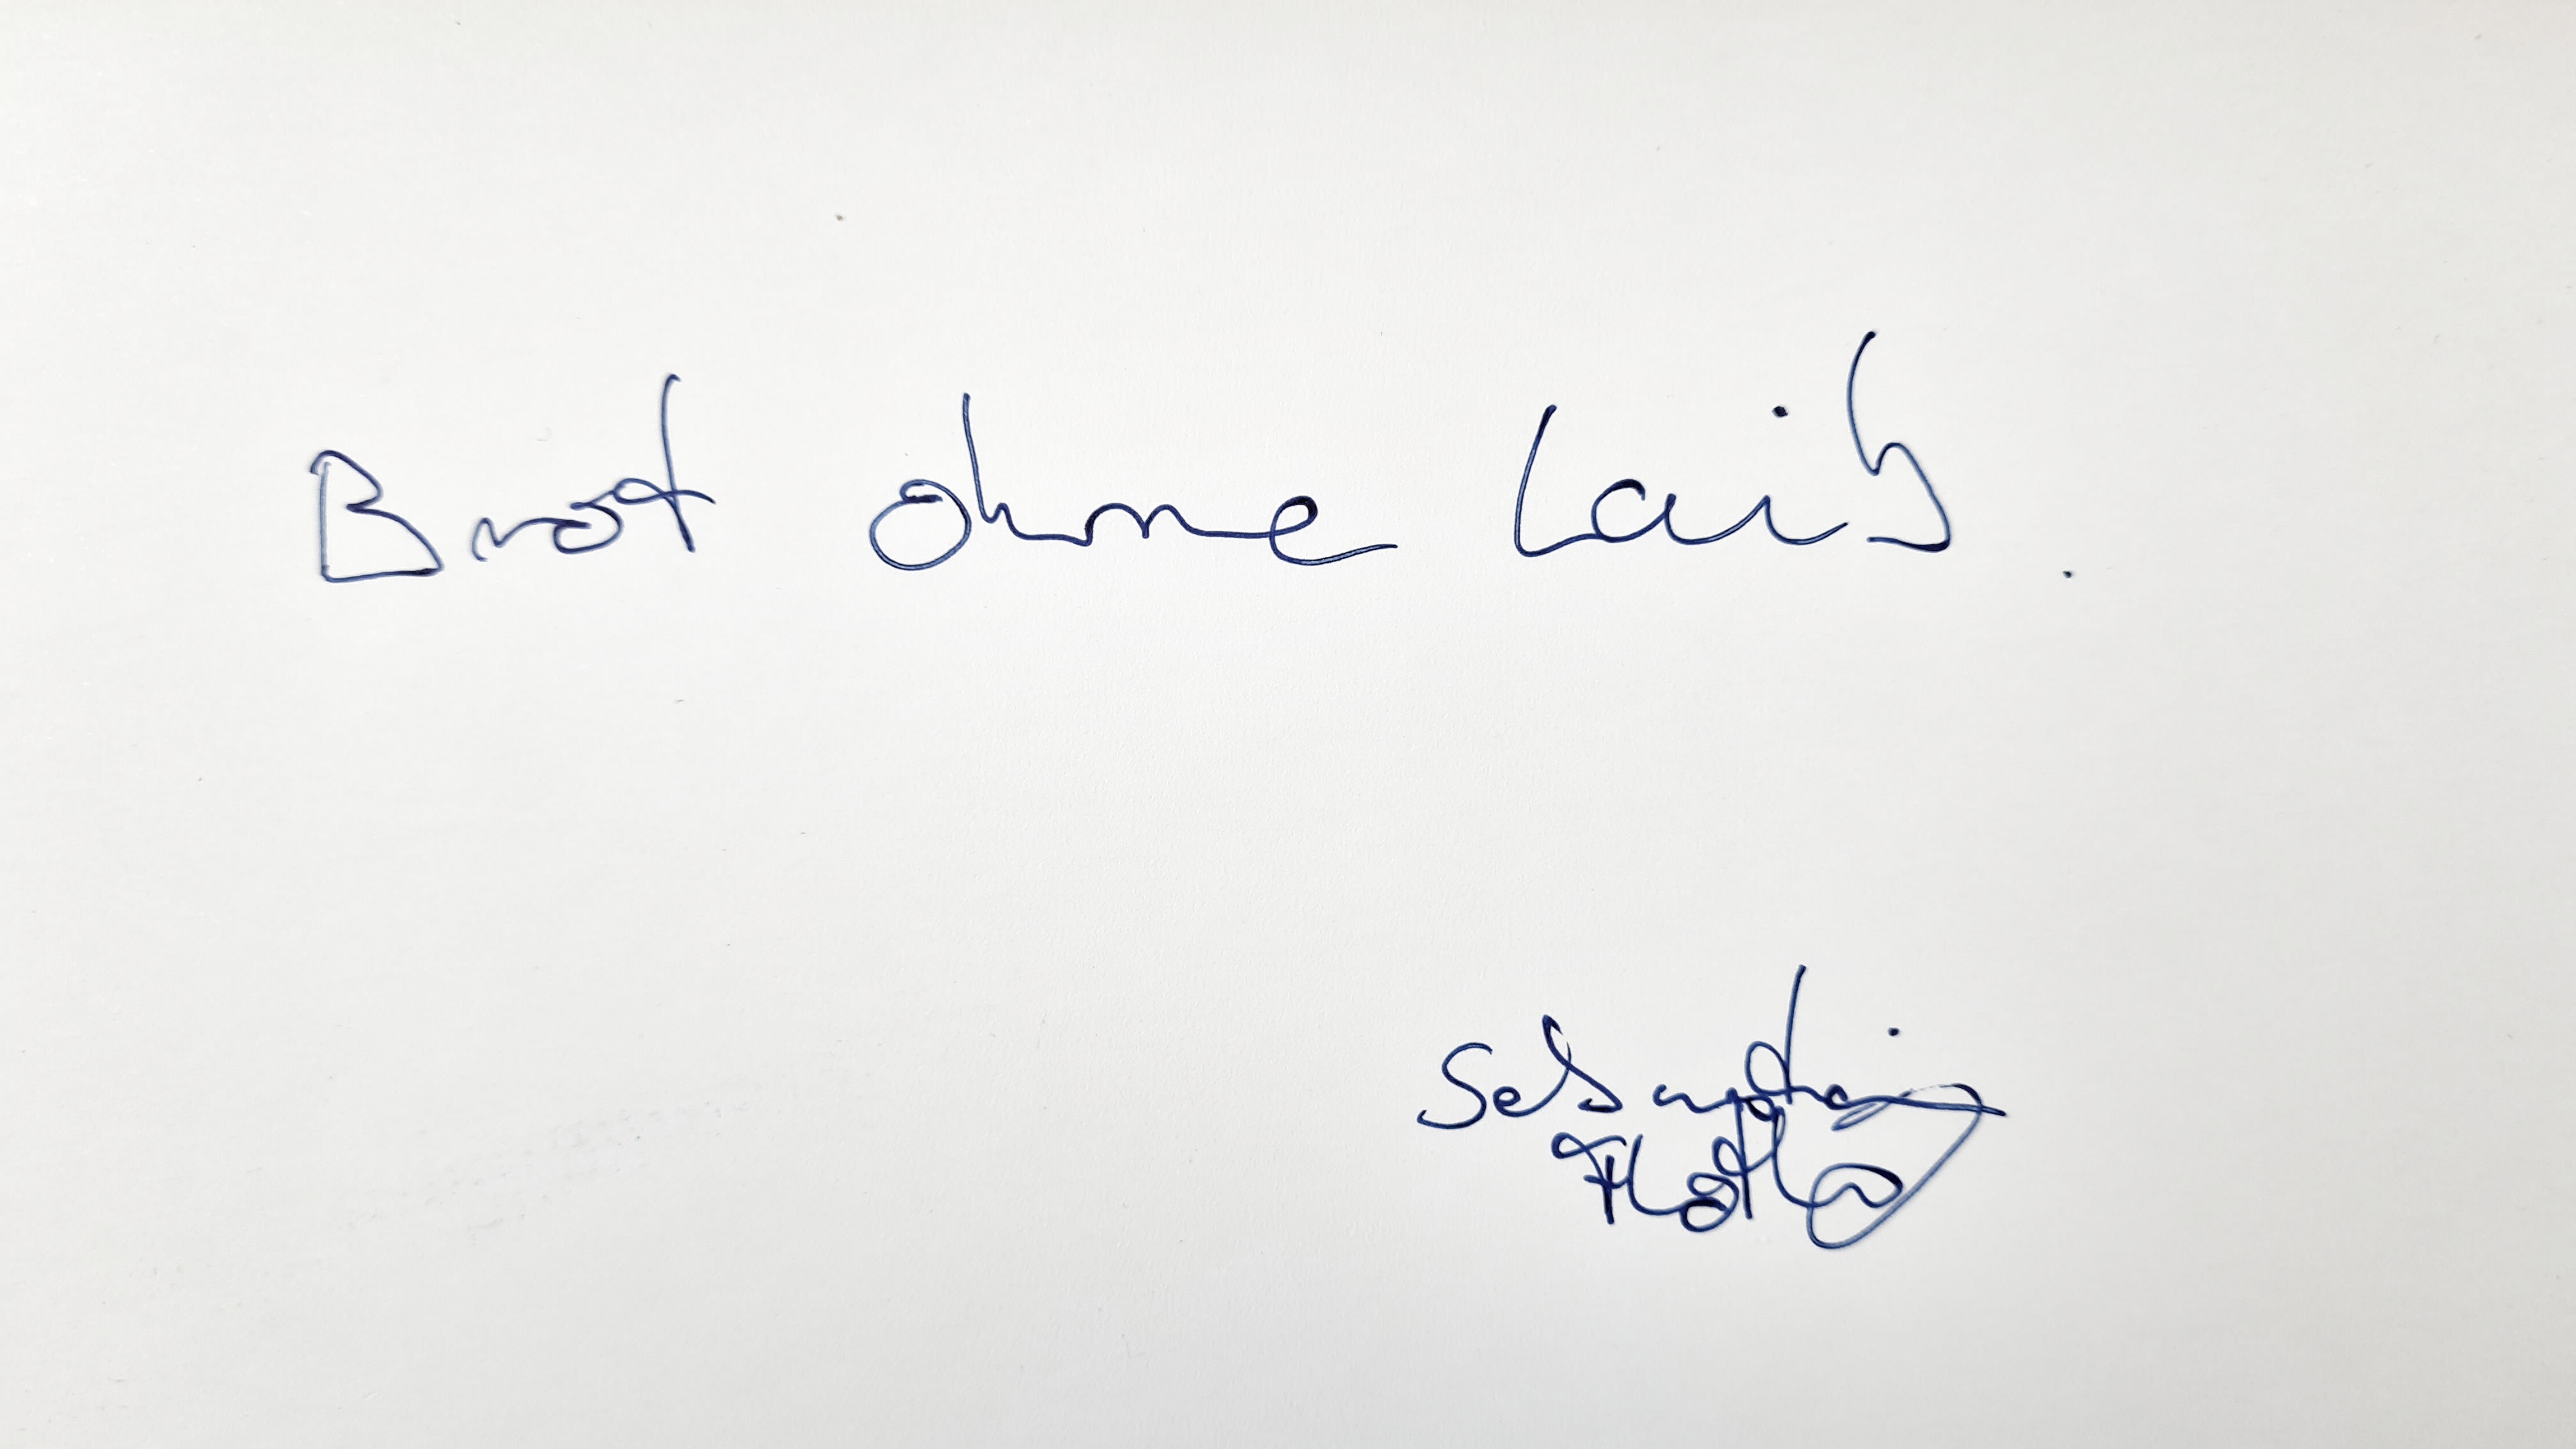 Brot ohne Laib.
Sebastian